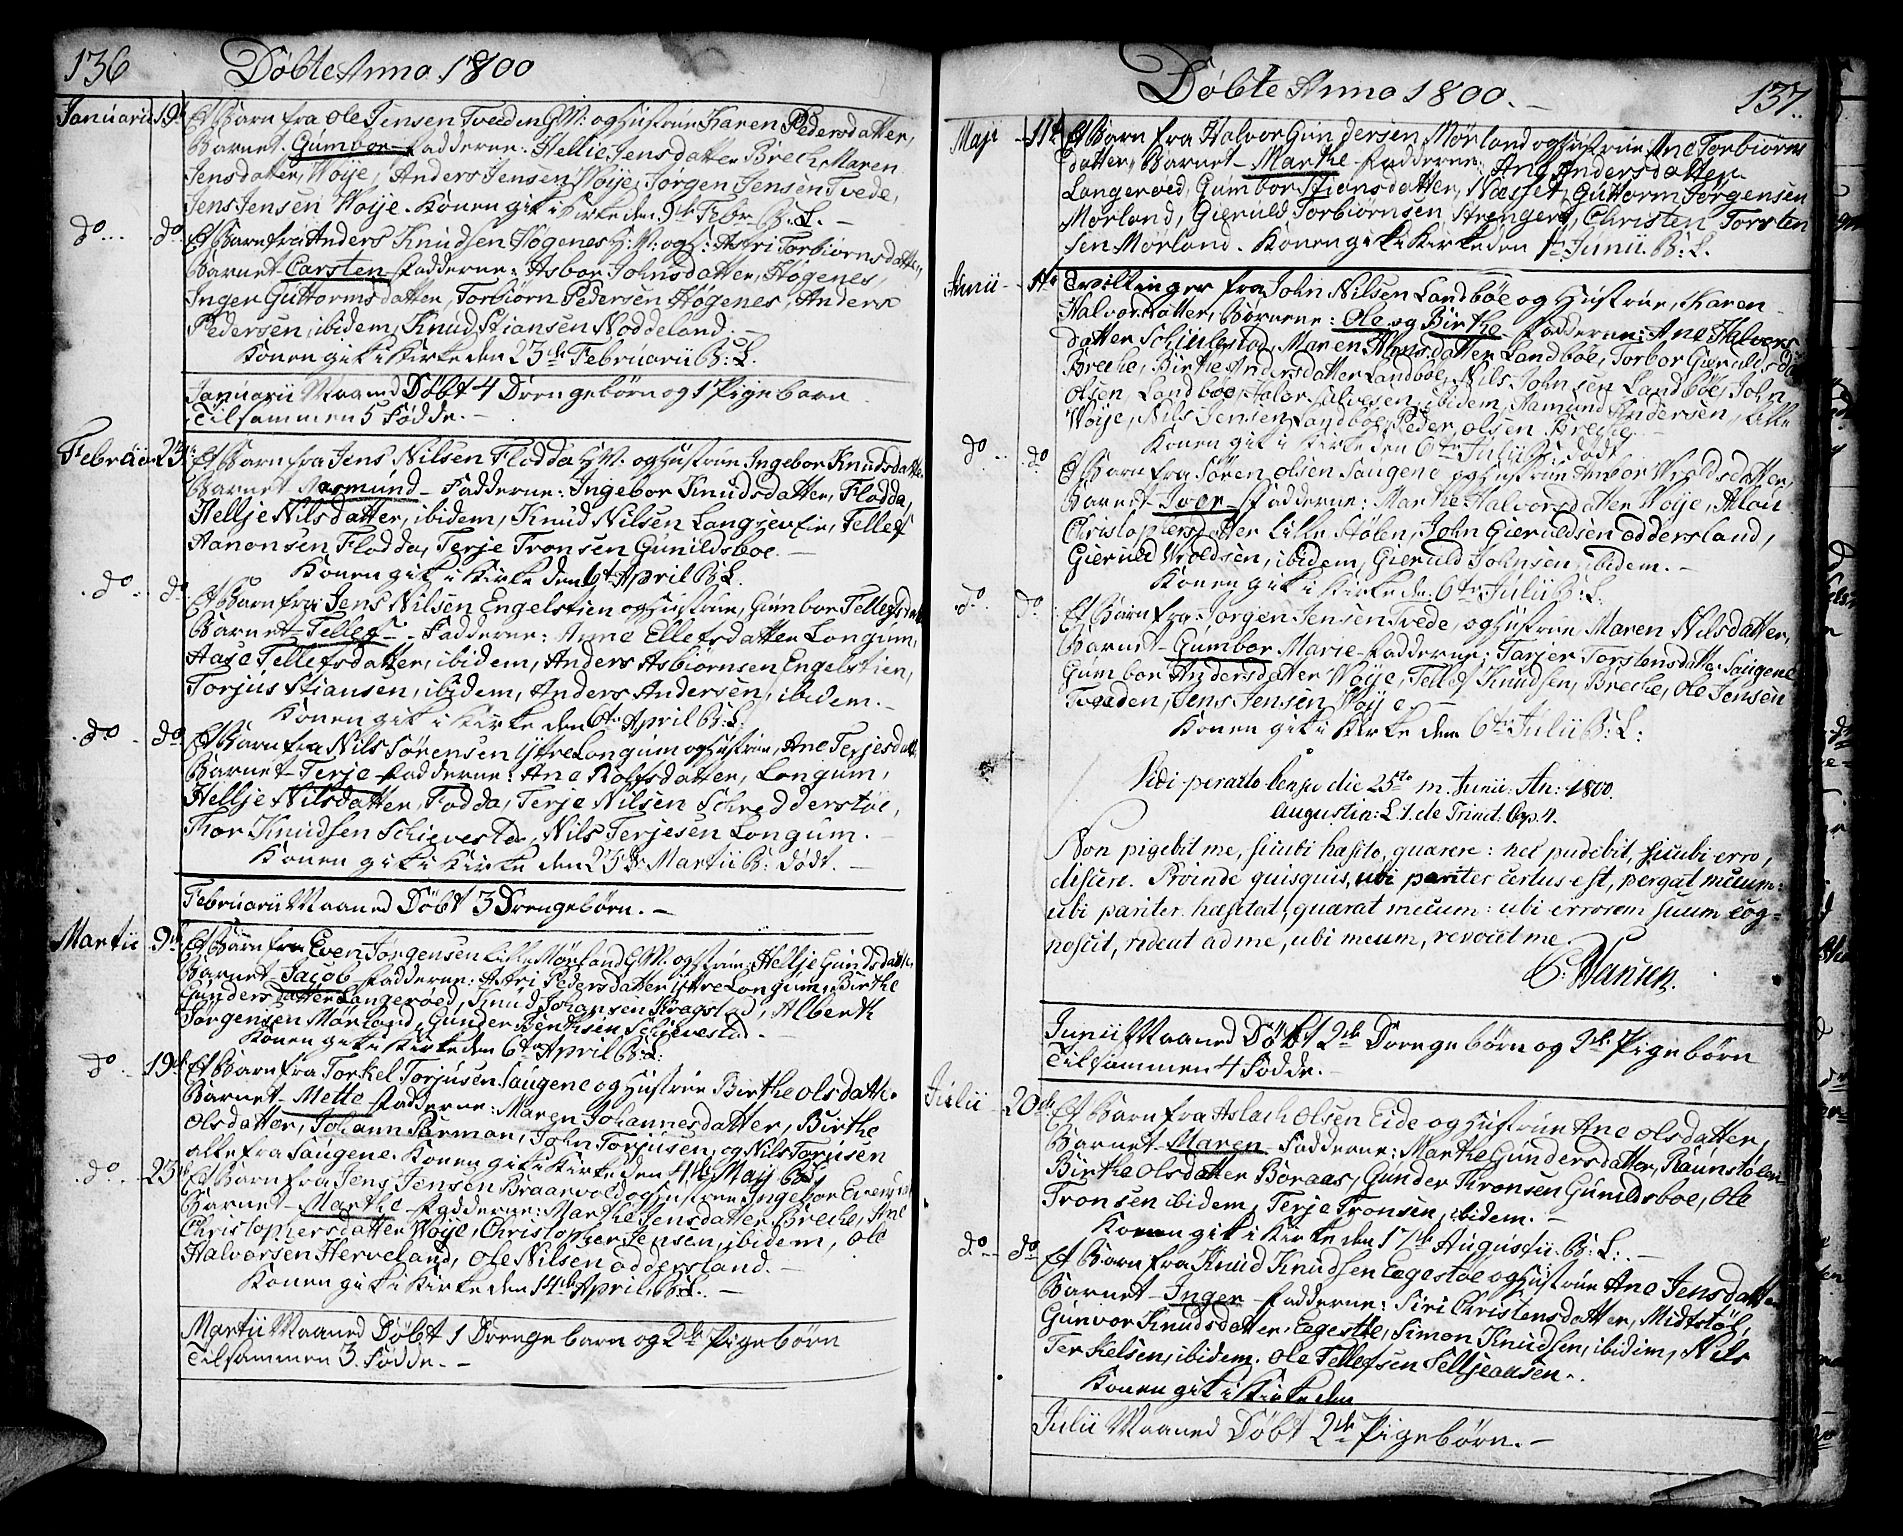 136
Döbte Anno 1800
Januarii 19de Et Barn fra Ole Jensen Tveeden G.M: og Hustrue Karen Pedersdatter,
Barnet. Gumbor - Fadderne: Hellie Jensdatter Breche, Maren
Jensdatter, Woije, Anders Jensen Woije, Jørgen Jensen Tvede,
Jens Jensen Woije. Konen gik i Kirke den 9de Febr. B: L. -
do... do Et Barn fra Anders Knudsen Høgenes H: M: og H: Astri Torbiørnsdatter,
Barnet Carsten Fadderne: Asbor Johnsdatter, Høgenes,
Inger Guttormsdatter, Torbiørn Pedersen Høgenes, Anders
Pedersen, ibidem, Knud Stiansen Noddeland. -
Konen gik i Kirke den 23de Februarii B: L.
Januarii Maaned Døbt 4 Drengebørn og 1 Pigebarn
Tilsammen 5 Fødde. -
Februarii 23de Et Barn fra Jens Nilsen Flodda H.M: og Hustrue Ingebor Knudsdatter
Barnet Aasmund - Fadderne: Ingebor Knudsdatter, Flodda,
Hellje Nilsdatter, ibidem, Knud Nilsen Langjevein, Tellef
Aanonsen Flodda, Terje Tronsen Gunildsboe. -
Konen gik i Kirke den 6te April B: L.
do.. do. Et Barn fra Jens Nilsen Engelstien og Hustrue, Gumbor Tellefsdatter
Barnet Tellef - Fadderne: Anne Ellefsdatter Longum,
Aase Tellefsdatter, ibidem, Anders Asbiørnsen Engelstien,
Torjus Stiansen, ibidem, Anders Andersen, ibidem. -
Konen gik i Kirke den 6te April B: L:
do. do Et Barn fra Nils Sørensen Yttre Longum og Hustrue, Ane Terjesdatt
Barnet - Terje - Fadderne: Ane Rolfsdatter, Longum,
Hellje Nilsdatter, Fodda, Terje Nilsen Schredderstøe,
Thor Knudsen Schievestad, Nils Terjesen Longum. -
Konen gik i Kirke den 23de Martii B: Født. -
Februarii Maaned Døbt 3 Drengebørn. -
Martii 9de Et Barn fra Even Jørgensen Lille Mørland G.M: og Hustrue: Hellje Gundsdatter,
Barnet - Jacob Fadderne: Astri Pedersdatter Yttre Longum, Birthe
Gundersdatter Langerøed, Knud Johansen Kragstad, Alberth
Jørgensen Mørland, Gunder Benthsen Schievestad. -
Konen gik i Kirke den 6te April B: L:
do. 19de Et Barn fra Torkel Torjusen Saugene og Hustrue Birthe Olsdatter
Barnet - Mette - Fadderne: Maren Johannesdatter, Birthe
Olsdatter, Johann Parman, John Torjusen, og Nils Torjusen
alle fra Saugene. Konen gik i Kirke den 4de Maij B: L
do. 23de Et Barn fra Jens Jensen Braarvold og Hustrue Ingebor Evensdr
Barnet - Marthe - Fadderne: Marthe Jensdatter Breche, Ane
Christophersdatter Woije, Christopher Jensen, ibidem, Ole
Halvorsen Herveland, Ole Nilsen Oddersland. -
Konen gik i Kirke den 14de April, B: L. -
Martii Maaned Døbt 1 Drengebarn og 2de Pigebørn
Tilsammen 3. Fødde. -
Döbte Anno 1800. -
137.
Maji 11te Et Barn fra Halvor Gundersen Mørland og Hustrue Ane Torbiørns
datter, Barnet - Marthe - Fadderne: Ane Andersdatter
Langerøed, Gumbor Stiansdatter, Næsset, Guttorm Jørgensen
Mørland, Gieruld Torbiørnsen, Strengere, Christen Torsten
sen Mørland. Konen gik i Kirke den 1te Junii. B: L.
Junii - Tvillinger fra John Nilsen Landbøe og Hustrue, Karen
Halvorsdatter, Børnene: Ole og Birthe Fadderne: Ane Halvors
datter Schiulestad, Maren Hansdatter Landbøe, Torbor Gierulds dr
Breche, Birthe Andersdatter Landbøe, Nils Johnsen Landbøe, John
Olsen Landbøe, Halvor Salvesen, ibidem, Aamund Andersen, Lille
Woije, Nils Jensen Landbøe, Peder Olsen Breche. -
Konen gik i Kirke den 6te Julii B: Født
do.. do Et Barn fra Søren Olsen Saugene og Hustrue Anbor Wroldsdatter,
Barnet - Iver - Fadderne: Marthe Halvorsdatter Woije,
Christophersdatter Lille Stølen, John Gieruldsen Oddersland,
Gieruld Wroldsen, ibidem, Gieruld Johnsen, ibidem. -
Konen gik i Kirke den 6te Julii B: L.
do. do Et Barn fra Jørgen Jensen Tvede, og Hustrue Maren Nilsdatter,
Barnet - Gumbor Marie - Fadderne: Tarjer Torstensdatter Saugene
Gumbor Andersdatter Woije, Tellef Knudsen, Breche, Ole Jensen
Tveeden, Jens Jensen Woije. -
Konen gik i Kirke den 6te Julii B: L:
Vidi peracto censu die 25to m. Junii: An: 1800.
Augustin: L. 1. de Trinit: Cap. 4.
Non pigebit me, sicubi hæsito, quærere: nec pudebit, sicubi erro,
discere. Proinde quisquis, ubi pariter certus est, pergat mecum:
ubi pariter hæsitat, quærat mecum: ubi errorem suum cog-
noscit, redeat ad me, ubi meum, revocet me.
Hansen.
Junii Maaned Døbt 2de Drengebørn og 2de Pigebørn
Tilsammen 4 Fødde. -
Julii 20de Et Barn fra Aslach Olsen Eide og Hustrue Ane Olsdatter,
Barnet - Maren - Fadderne: Marthe Gundersdatter, Raunstølen
Birthe Olsdatter Boraas, Gunder Tronsen Gunildsboe, Ole
Tronsen ibidem, Terje Tronsen, ibidem. -
Konen gik i Kirke den 17de Augustii B: L:. -
do.. do Et Barn fra Knud Knudsen Eegestøe og Hustrue Ane Jensdatter
Barnet - Inger - Fadderne: Siri Christensdatter, Midtstøl,
Gunvor Knudsdatter, Eegestøe, Simon Knudsen, ibidem, Nils
Terkelsen, ibidem. Ole Tellefsen Selljeaasen. -
Konen gik i Kirke den
Julii Maaned Døbt 2de Pigebørn. -